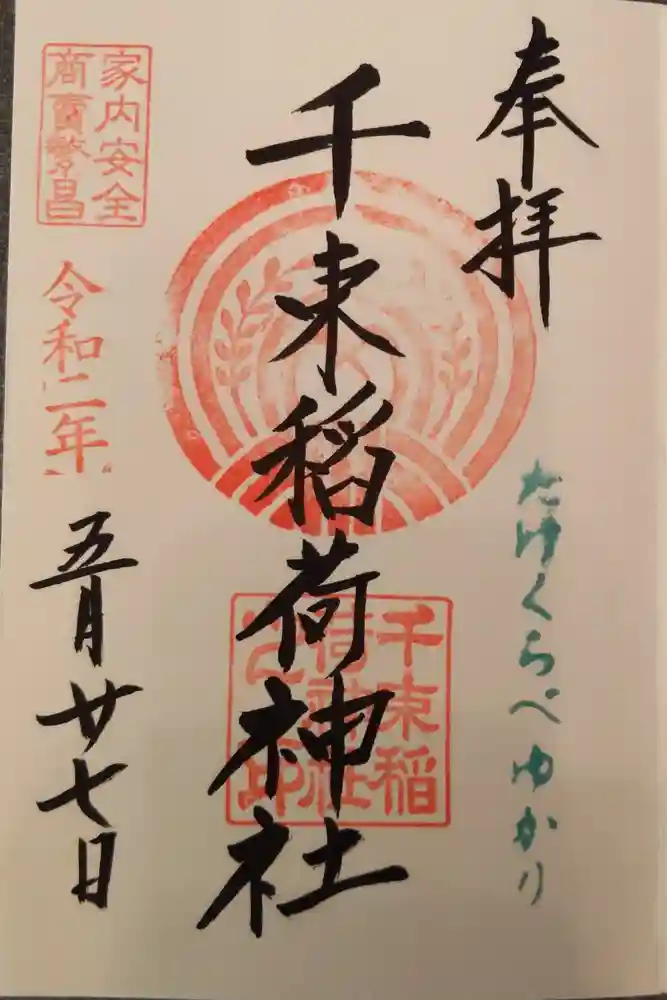 奉拝
たけくらべゆかり
千束稲荷神社
千束稲
荷神社
之印
家内安全
商賣繁昌
令和二年
五月廿七日